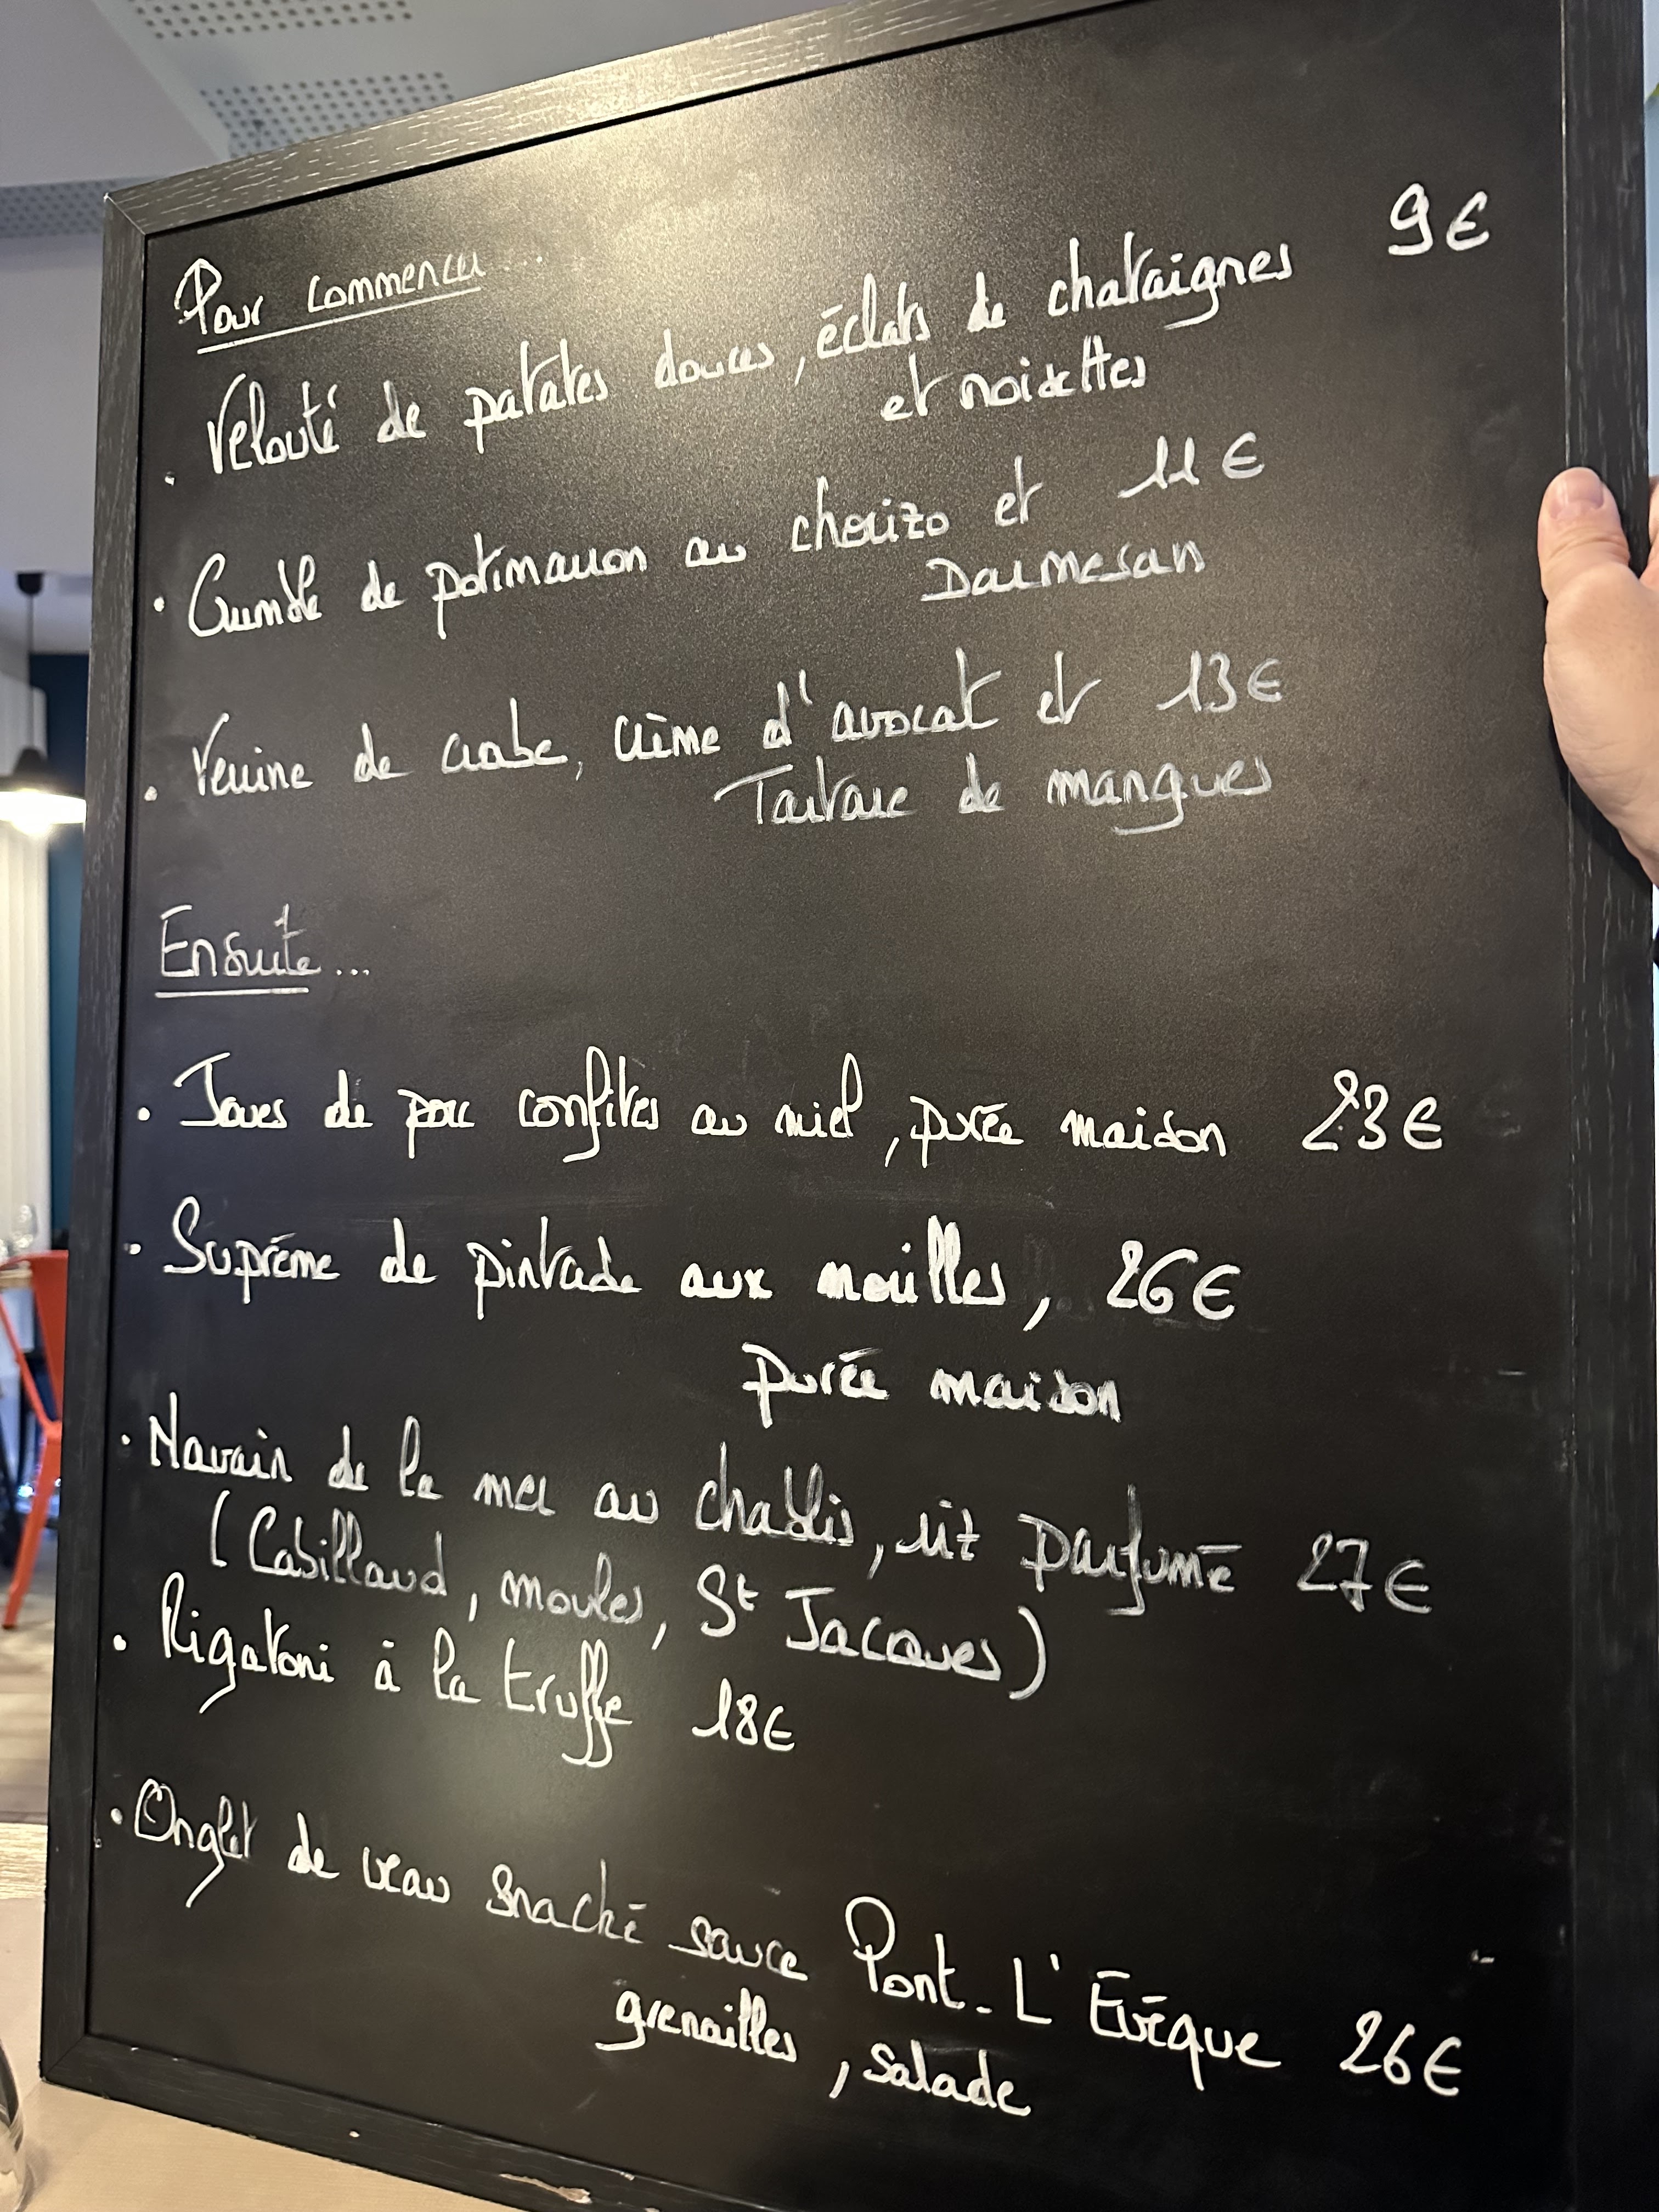 Pour commencer...
. Velouté de patates douces, éclats de chataignes 9€
et noisettes
. Crumble de potimarron au chorizo et 11€
Parmesan
. Verrine de crabe, crème d'avocat et 13€
Tartare de mangues
Ensuite...
. Joues de porc confites au miel, purée maison 23€
. Suprême de pintade aux morilles, 26€
purée maison
. Navarin de la mer au chablis, riz parfumé 27€
(Cabillaud, moules, St Jacques)
. Rigatoni à la truffe 18€
. Onglet de veau snacké sauce Pont-L'Évêque 26€
grenailles, salade